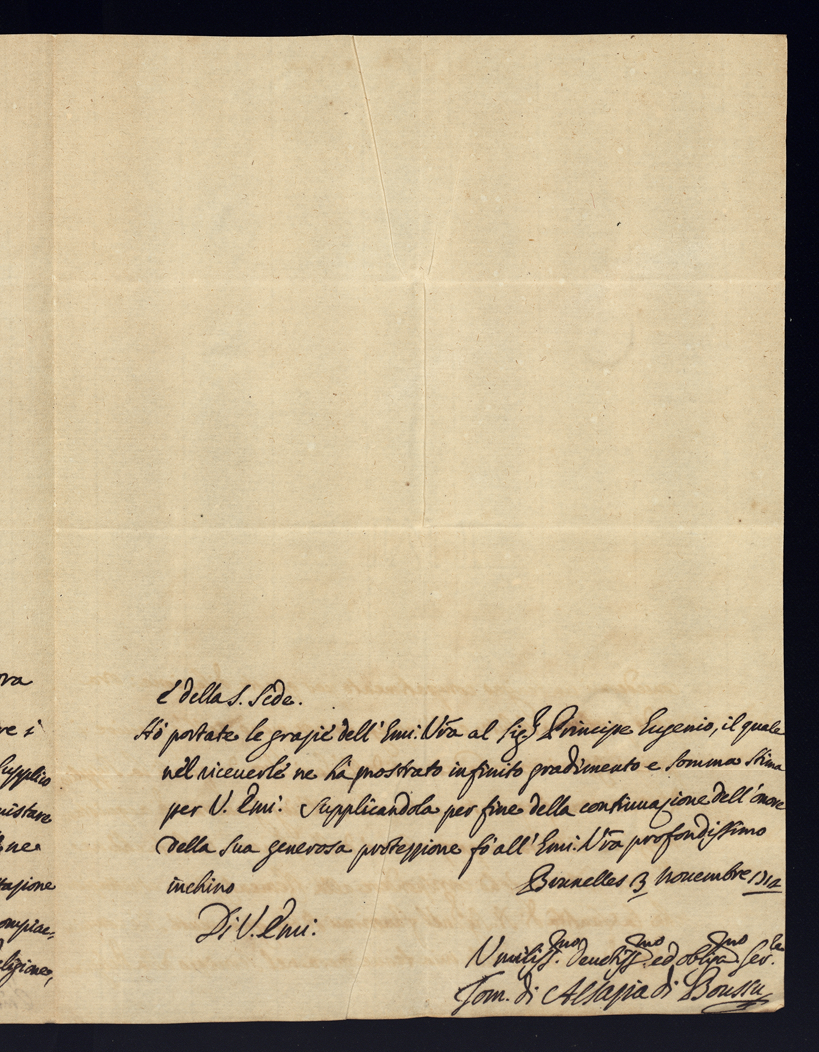 ova
re i
supplico
nistare
ne
tazione
ompiac=
eligione,
é della S. Sede.
Hó portate le grazié dell' Emi: Vra al Sigr Principe Eugenio, il quale
nél riceuerlé ne há mostrato infinito gradimento e somma stima
per V. Emi: supplicandola per fine della continuazione dell' ónore
della sua generosa protezzione fó all' Emi: Vra profondissimo
inchino Brunelles 13 nouembre
Di V. Emi:
Vmilissmo deuotissmo ed obligmo ser.
Tom. di Alsazia di Boussu